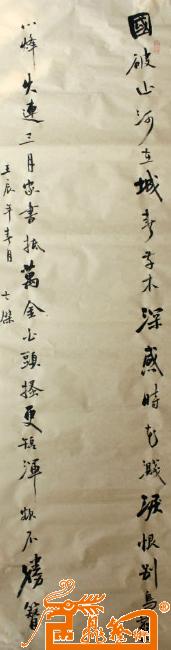 國破山河在城春草木深感時花濺淚恨別鳥驚
心烽火連三月家書抵萬金白頭搔更短渾欲不勝簪
壬辰年春月 傑